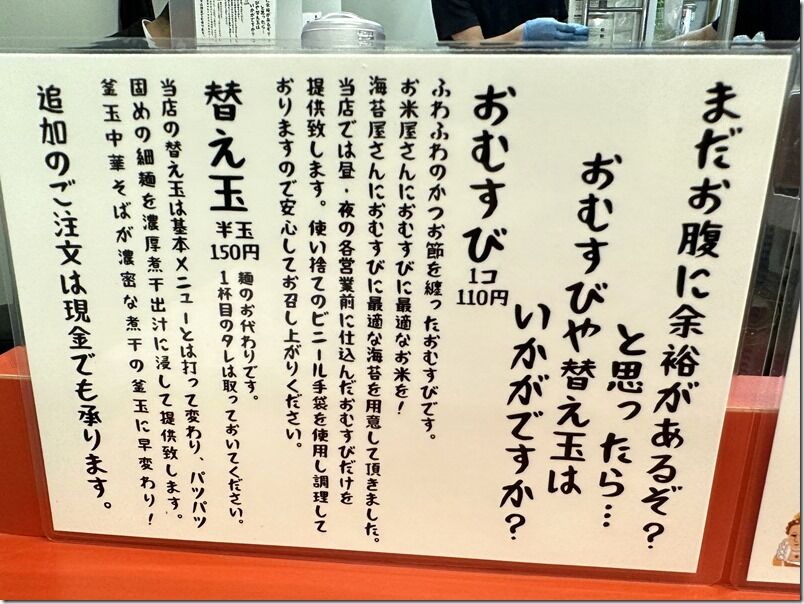 まだお腹に余裕があるぞ？
と思ったら…
おむすびや替え玉は
いかがですか？
おむすび
1コ
110円
ふわふわのかつお節を纏ったおむすびです。
お米屋さんにおむすびに最適なお米を！
海苔屋さんにおむすびに最適な海苔を用意して頂きました。
当店では昼・夜の各営業前に仕込んだおむすびだけを
提供致します。使い捨てのビニール手袋を使用し調理して
おりますので安心してお召し上がりください。
替え玉
半玉
150円
麺のお代わりです。
1杯目のタレは取っておいてください。
当店の替え玉は基本メニューとは打って変わり、パツパツ
固めの細麺を濃厚煮干出汁に浸して提供致します。
釜玉中華そばが濃密な煮干の釜玉に早変わり！
追加のご注文は現金でも承ります。